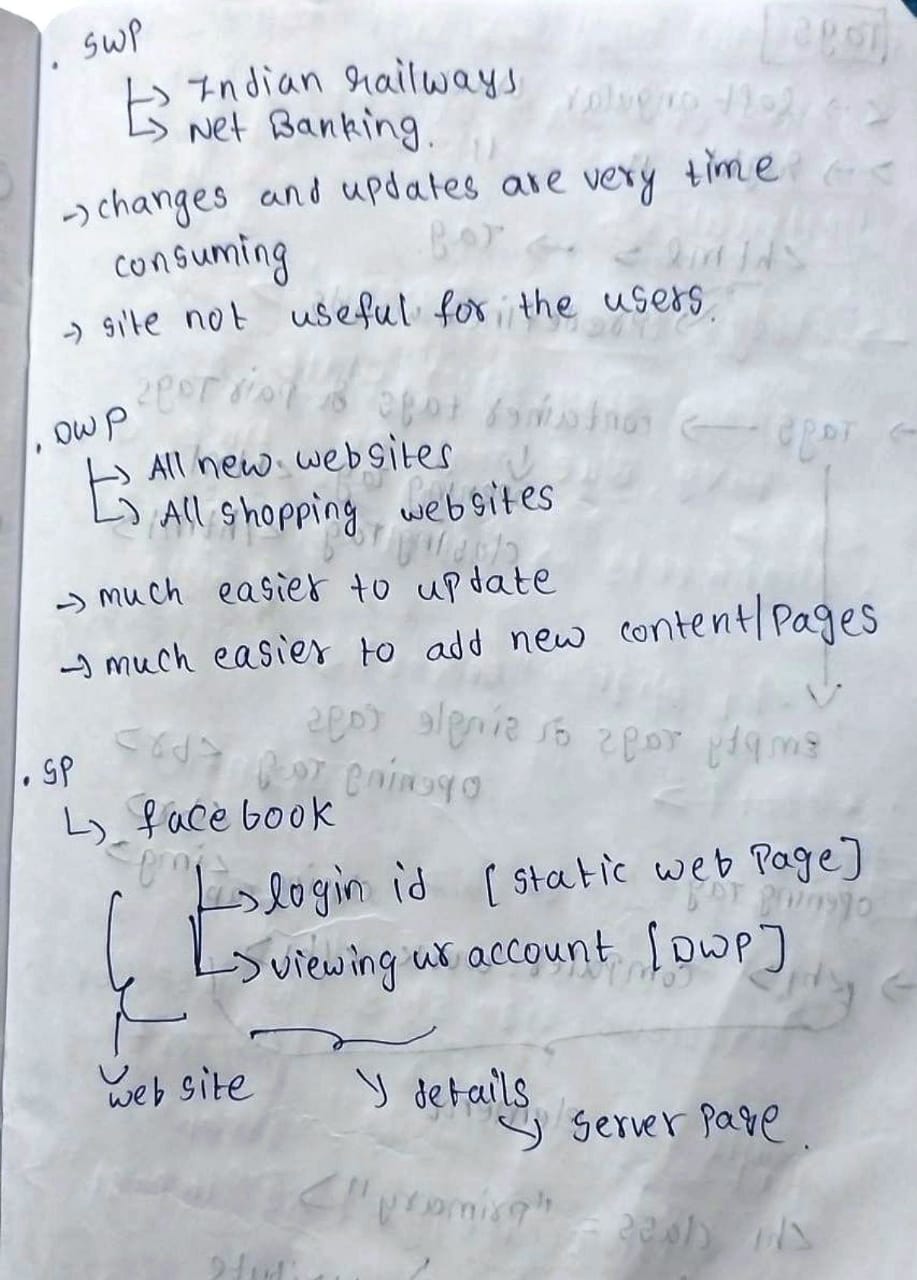 . SWP
↳ Indian railways
↳ Net Banking.
→ changes and updates are very time
consuming
→ site not useful for the users.
. DWP
↳ All new websites
↳ All shopping websites
→ much easier to update
→ much easier to add new content/pages
. SP
↳ facebook
↳ login id [static web page]
↳ viewing ur account [DWP]
web site
details
↳ server page.